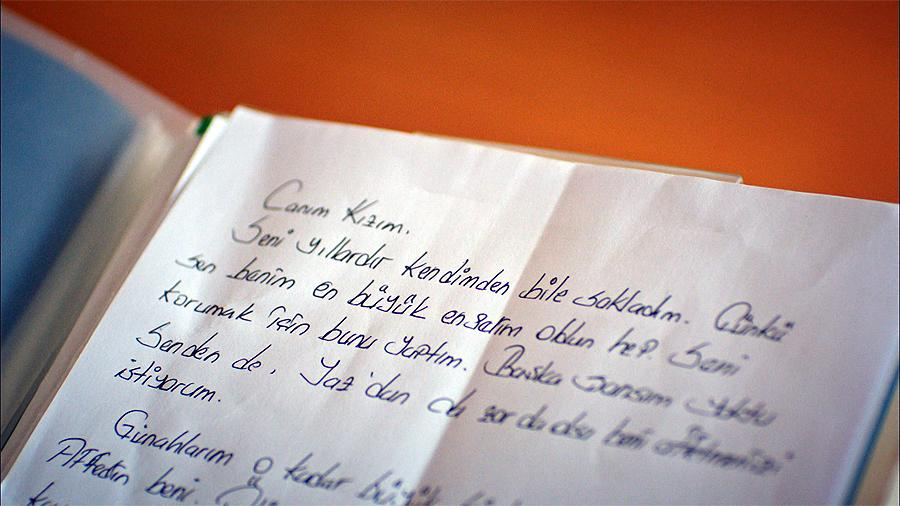 Canım Kızım.
Seni yıllardır kendimden bile sakladım. Çünkü
sen benim en büyük enyatım oldun hep. Seni
korumak için bunu yaptım. Başka şansım yoktu
Senden de, Yaz'dan da zor da olsa beni affetmenizi
istiyorum.
Günahlarım o kadar büyük
Affedin beni.